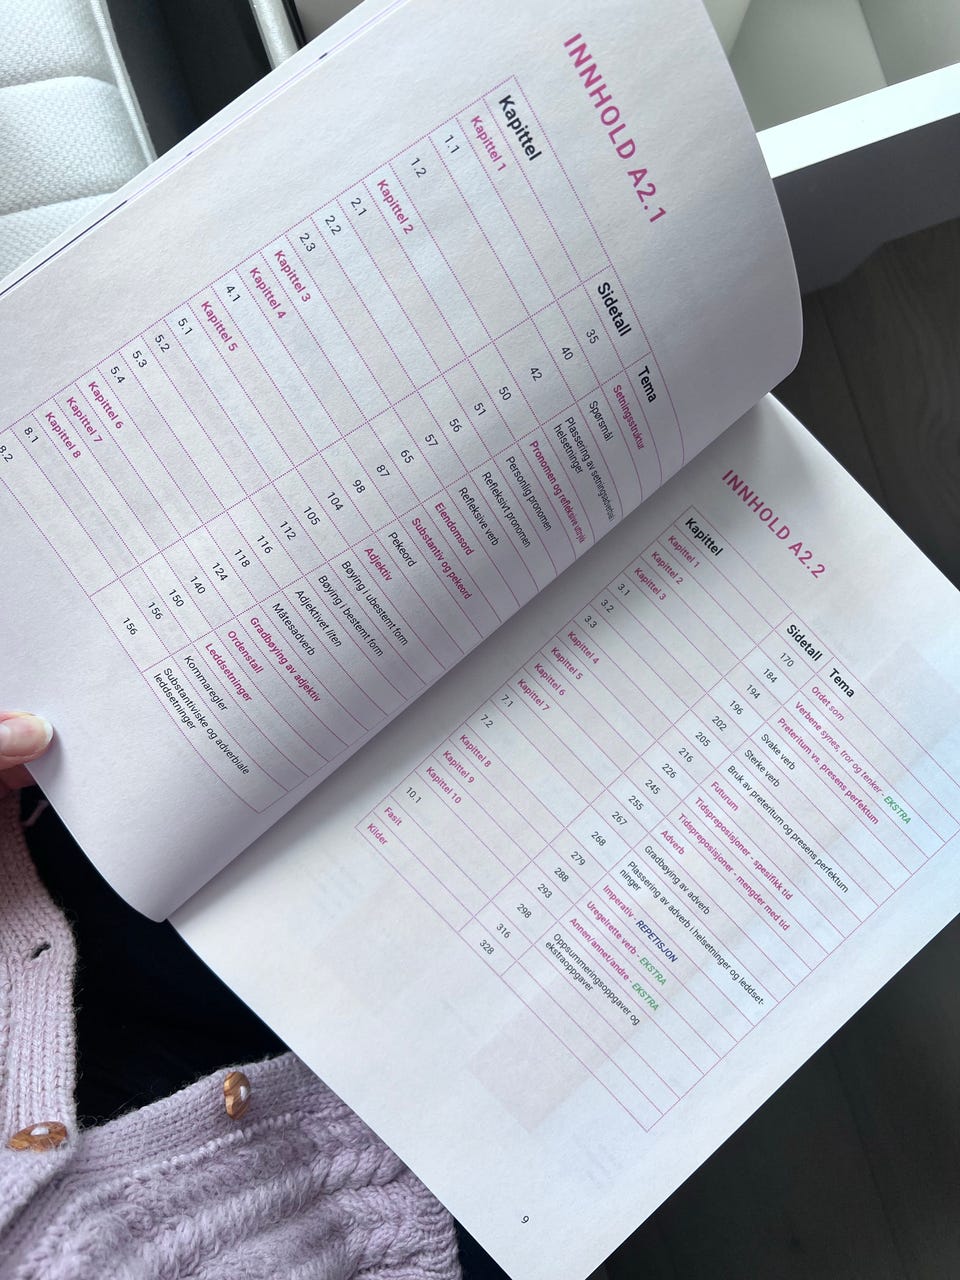 INNHOLD A2.1
Kapittel Sidetall Tema
Kapittel 1 35 Setningsstruktur
1.1 40 Spørsmål
1.2 42 Plassering av setningsadverbial
helsetninger
Kapittel 2 50 Pronomen og refleksive uttrykk
2.1 51 Personlig pronomen
2.2 56 Refleksivt pronomen
2.3 57 Refleksive verb
Kapittel 3 65 Eiendomsord
Kapittel 4 87 Substantiv og pekeord
4.1 98 Pekeord
Kapittel 5 104 Adjektiv
5.1 105 Bøying i ubestemt form
5.2 112 Bøying i bestemt form
5.3 116 Adjektivet liten
5.4 118 Måtesadverb
Kapittel 6 124 Gradbøying av adjektiv
Kapittel 7 140 Ordenstall
Kapittel 8 150 Leddsetninger
8.1 156 Kommaregler
8.2 156 Substantiviske og adverbiale
leddsetninger
INNHOLD A2.2
Kapittel Sidetall Tema
Kapittel 1 170 Ordet som
Kapittel 2 184 Verbene synes, tror og tenker - EKSTRA
Kapittel 3 194 Preteritum vs. presens perfektum
3.1 196 Svake verb
3.2 202 Sterke verb
3.3 205 Bruk av preteritum og presens perfektum
Kapittel 4 216 Futurum
Kapittel 5 226 Tidspreposisjoner - spesifikk tid
Kapittel 6 245 Tidspreposisjoner - mengder med tid
Kapittel 7 255 Adverb
7.1 267 Gradbøying av adverb
7.2 268 Plassering av adverb i helsetninger og leddset-
ninger
Kapittel 8 279 Imperativ - REPETISJON
Kapittel 9 288 Uregelrette verb - EKSTRA
Kapittel 10 293 Annen/annet/andre - EKSTRA
10.1 298 Oppsummeringsoppgaver og
ekstraoppgaver
Fasit 316
Kilder 328
9